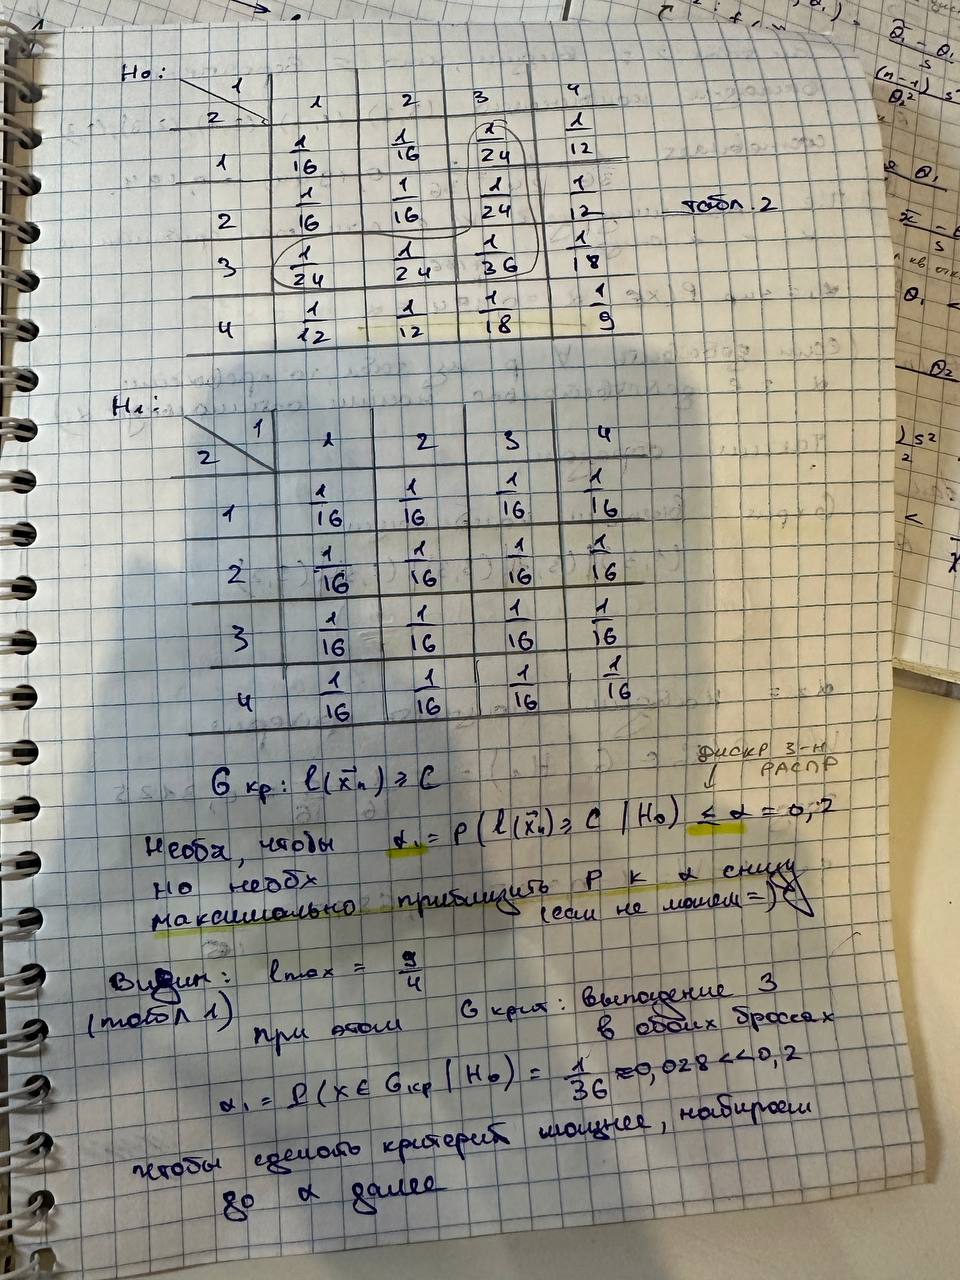 H₀:
1
2
1 2 3 4
1 1/16 1/16 1/24 1/12
2 1/16 1/16 1/24 1/12
табл. 2
3 1/24 1/24 1/36 1/18
4 1/12 1/12 1/18 1/9
H₁:
1
2
1 2 3 4
1 1/16 1/16 1/16 1/16
2 1/16 1/16 1/16 1/16
3 1/16 1/16 1/16 1/16
4 1/16 1/16 1/16 1/16
дискр з-н
распр
G кр: l(x⃗n) ≥ C
Необх, чтобы α₁ = P(l(x⃗n) ≥ C | H₀) ≤ α = 0,2
но необх
максимально приблизить P к α снизу
(если не можем =)
Видим: lmax = 9/4
(табл 1)
при этом G крит: выпадение 3
в обоих бросках
α₁ = P(x ∈ Gкр | H₀) = 1/36 ≈ 0,028 << 0,2
чтобы сделать критерий мощнее, набираем
до α далее